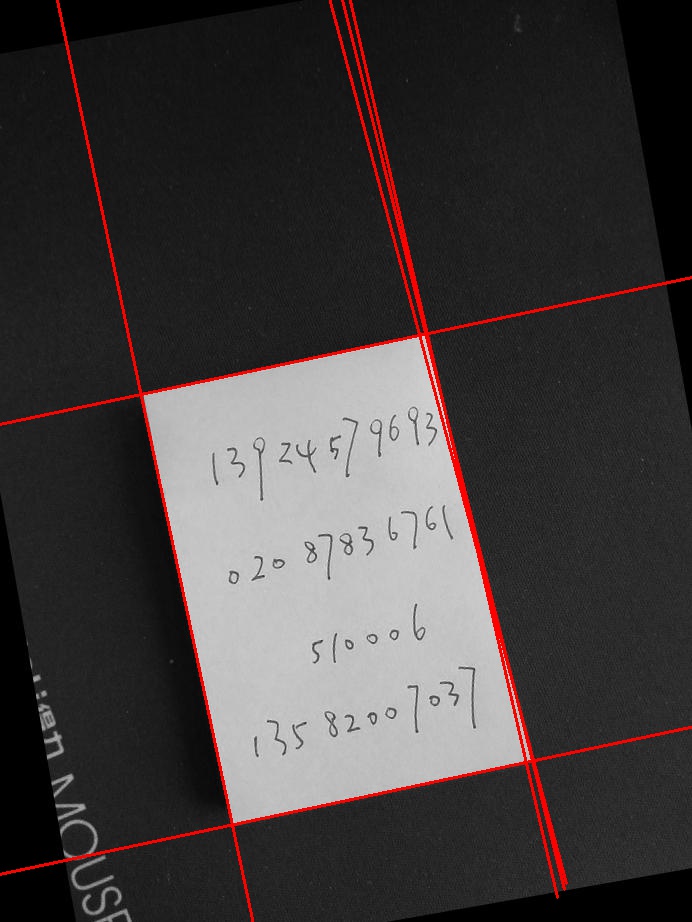 139 2457 9693
020 8783 6761
510006
135 8200 7037
得力 MOUSE